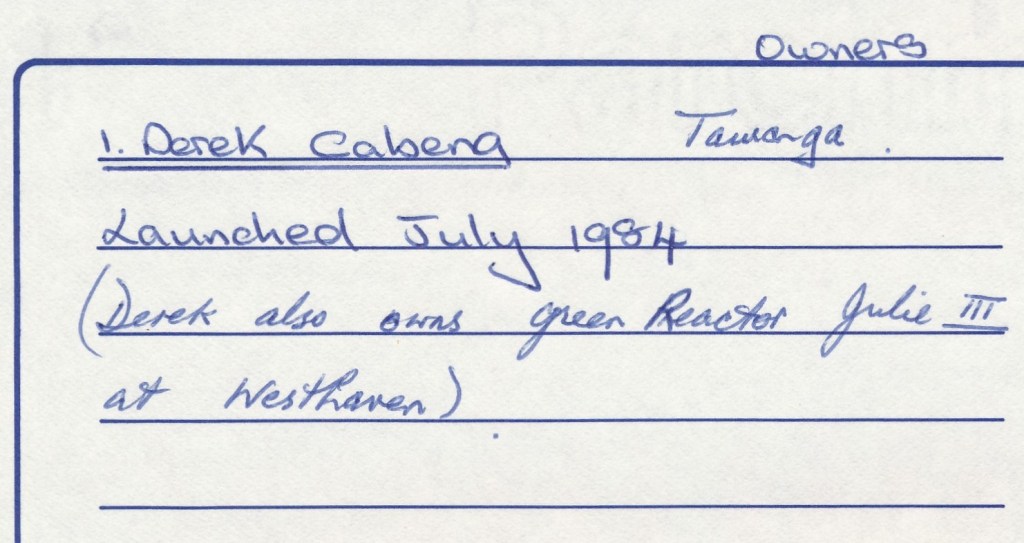 Owners
1. Derek Cabeng Tauranga.
Launched July 1984
(Derek also owns green Reactor Julie III
at Westhaven)